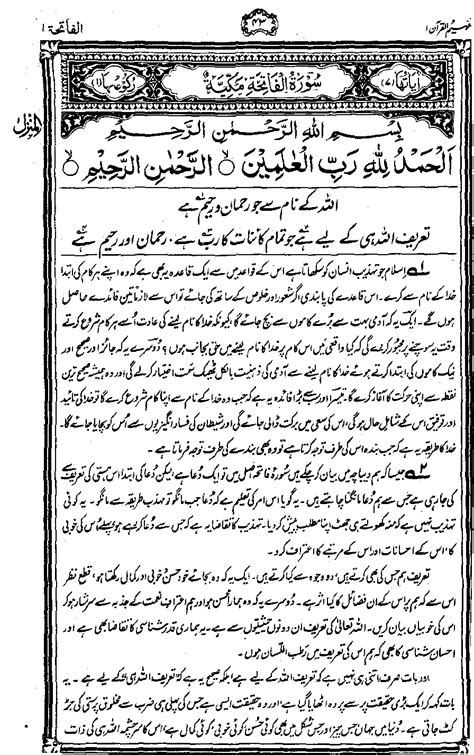 تفہیم القرآن ۱
۴۳
الفاتحۃ ۱
اٰیاتھا (۷)
سُوْرَۃُ الْفَاتِحَۃِ مَکِّیَّۃٌ
رکوعہا (۱)
المنزل
بِسْمِ اللّٰہِ الرَّحْمٰنِ الرَّحِیْمِ
اَلْحَمْدُ لِلّٰہِ رَبِّ الْعٰلَمِیْنَ ۝ الرَّحْمٰنِ الرَّحِیْمِ ۝
اللہ کے نام سے جو رحمان و رحیم ہے
تعریف اللہ ہی کے لیے ہے جو تمام کائنات کا رب ہے، رحمان اور رحیم ہے
۱؎ اسلام جو تہذیب انسان کو سکھاتا ہے اس کے قواعد میں سے ایک قاعدہ یہ بھی ہے کہ وہ اپنے ہر کام کی ابتدا
خدا کے نام سے کرے۔ اس قاعدے کی پابندی اگر شعور اور خلوص کے ساتھ کی جائے تو اس سے لازماً تین فائدے حاصل
ہوں گے۔ ایک یہ کہ آدمی بہت سے بُرے کاموں سے بچ جائے گا، کیونکہ خدا کا نام لینے کی عادت اُسے ہر کام شروع کرتے
وقت یہ سوچنے پر مجبور کر دے گی کہ کیا واقعی میں اس کام پر خدا کا نام لینے میں حق بجانب ہوں؟ دُوسرے یہ کہ جائز اور صحیح اور
نیک کاموں کی ابتدا کرتے ہوئے خدا کا نام لینے سے آدمی کی ذہنیت بالکل ٹھیک سمت اختیار کر لے گی اور وہ ہمیشہ صحیح ترین
نقطہ سے اپنی حرکت کا آغاز کرے گا۔ تیسرا اور سب سے بڑا فائدہ یہ ہے کہ جب وہ خدا کے نام سے اپنا کام شروع کرے گا تو خدا کی تائید
اور توفیق اس کے شامل حال ہو گی، اس کی سعی میں برکت ڈالی جائے گی اور شیطان کی فساد انگیزیوں سے اُس کو بچایا جائے گا۔
خدا کا طریقہ یہ ہے کہ جب بندہ اس کی طرف توجہ کرتا ہے تو وہ بھی بندے کی طرف توجہ فرماتا ہے۔
۲؎ جیسا کہ ہم دیباچہ میں بیان کر چکے ہیں سُورۂ فاتحہ اصل میں تو ایک دُعا ہے، لیکن دُعا کی ابتدا اس ہستی کی تعریف سے
کی جا رہی ہے جس سے ہم دُعا مانگنا چاہتے ہیں۔ یہ گویا اس امر کی تعلیم ہے کہ دُعا جب مانگو تو مہذب طریقہ سے مانگو۔ یہ کوئی
تہذیب نہیں ہے کہ منہ کھولتے ہی جھٹ اپنا مطلب پیش کر دیا۔ تہذیب کا تقاضا یہ ہے کہ جس سے دُعا کر رہے ہو، پہلے اُس کی خوبی
کا، اس کے احسانات اور اس کے مرتبے کا اعتراف کرو۔
تعریف ہم جس کی بھی کرتے ہیں، دو وجوہ سے کیا کرتے ہیں۔ ایک یہ کہ وہ بجائے خود حسن و خوبی اور کمال رکھتا ہو، قطع نظر
اس سے کہ ہم پر اس کے ان فضائل کا کیا اثر ہے۔ دُوسرے یہ کہ وہ ہمارا محسن ہو اور ہم اعترافِ نعمت کے جذبہ سے سرشار ہو کر
اس کی خوبیاں بیان کریں۔ اللہ تعالیٰ کی تعریف ان دونوں حیثیتوں سے ہے۔ یہ ہماری قدر شناسی کا تقاضا بھی ہے اور
احسان شناسی کا بھی کہ ہم اس کی تعریف میں رطب اللسان ہوں۔
اور بات صرف اتنی ہی نہیں ہے کہ تعریف اللہ کے لیے ہے، بلکہ صحیح یہ ہے کہ ”تعریف اللہ ہی“ کے لیے ہے۔ یہ
بات کہہ کر ایک بڑی حقیقت پر سے پردہ اُٹھایا گیا ہے، اور وہ حقیقت ایسی ہے جس کی پہلی ہی ضرب سے مخلوق پرستی کی جڑ
کٹ جاتی ہے۔ دُنیا میں جہاں جس چیز اور جس شکل میں بھی کوئی حُسن، کوئی خوبی، کوئی کمال ہے، اس کا سرچشمہ اللہ ہی کی ذات